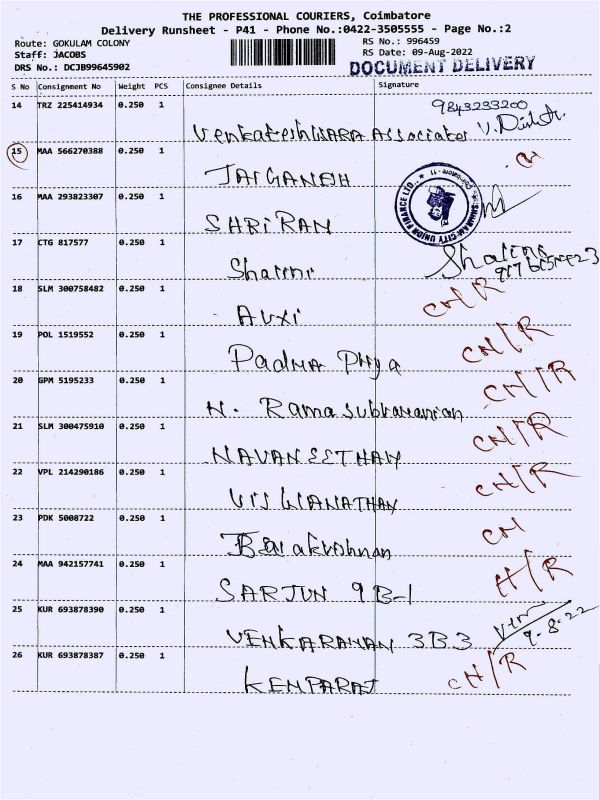 THE PROFESSIONAL COURIERS, Coimbatore
Delivery Runsheet - P41 - Phone No.:0422-3505555 - Page No.:2
Route: GOKULAM COLONY
RS No.: 996459
Staff: JACOBS
RS Date: 09-Aug-2022
DRS No.: DCJB99645902
DOCUMENT DELIVERY
S No Consignment No Weight PCS Consignee Details Signature
14 TRZ 225414934 0.250 1
9843233200
VenkateshWARA Associates
15 MAA 566270388 0.250 1
CH
JAIGANESH
16 MAA 293823307 0.250 1
SHRIRAM CITY UNION FINANCE LTD.,
Coimbatore - 11
SHRIRAM
17 CTG 817577 0.250 1
Shalini
18 SLM 300758482 0.250 1
CH/R
AUXI
19 POL 1519552 0.250 1
CH/R
Padma
20 GPM 5195233 0.250 1
CH/R
N. Ramasubramanian
21 SLM 300475910 0.250 1
CH/R
NAVANEETHAN
22 VPL 214290186 0.250 1
CH/R
VISWANATHAN
23 PDK 5008722 0.250 1
CH
Balakrishnan
24 MAA 942157741 0.250 1
H/R
SARJUN 9B-1
25 KUR 693878390 0.250 1
9-8-22
VENKARAMAN 3B3
26 KUR 693878387 0.250 1
CH/R
KENPARAJ